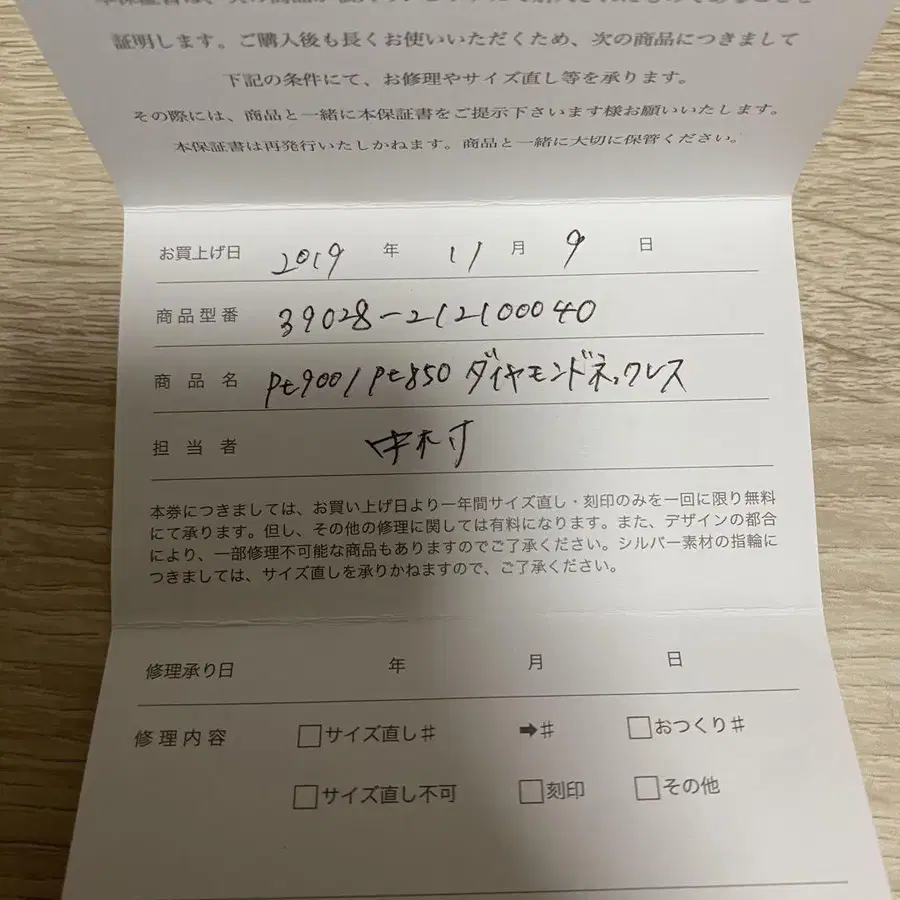 証明します。ご購入後も長くお使いいただくため、次の商品につきまして
下記の条件にて、お修理やサイズ直し等を承ります。
その際には、商品と一緒に本保証書をご提示下さいます様お願いいたします。
本保証書は再発行いたしかねます。商品と一緒に大切に保管ください。
お買上げ日 2019 年 11 月 9 日
商品型番 39028-212100040
商品名 Pt900/Pt850 ダイヤモンドネックレス
担当者 中村
本券につきましては、お買い上げ日より一年間サイズ直し・刻印のみを一回に限り無料
にて承ります。但し、その他の修理に関しては有料になります。また、デザインの都合
により、一部修理不可能な商品もありますのでご了承ください。シルバー素材の指輪に
つきましては、サイズ直しを承りかねますので、ご了承ください。
修理承り日 年 月 日
修理内容 □サイズ直し♯ ➡♯ □おつくり♯
□サイズ直し不可 □刻印 □その他